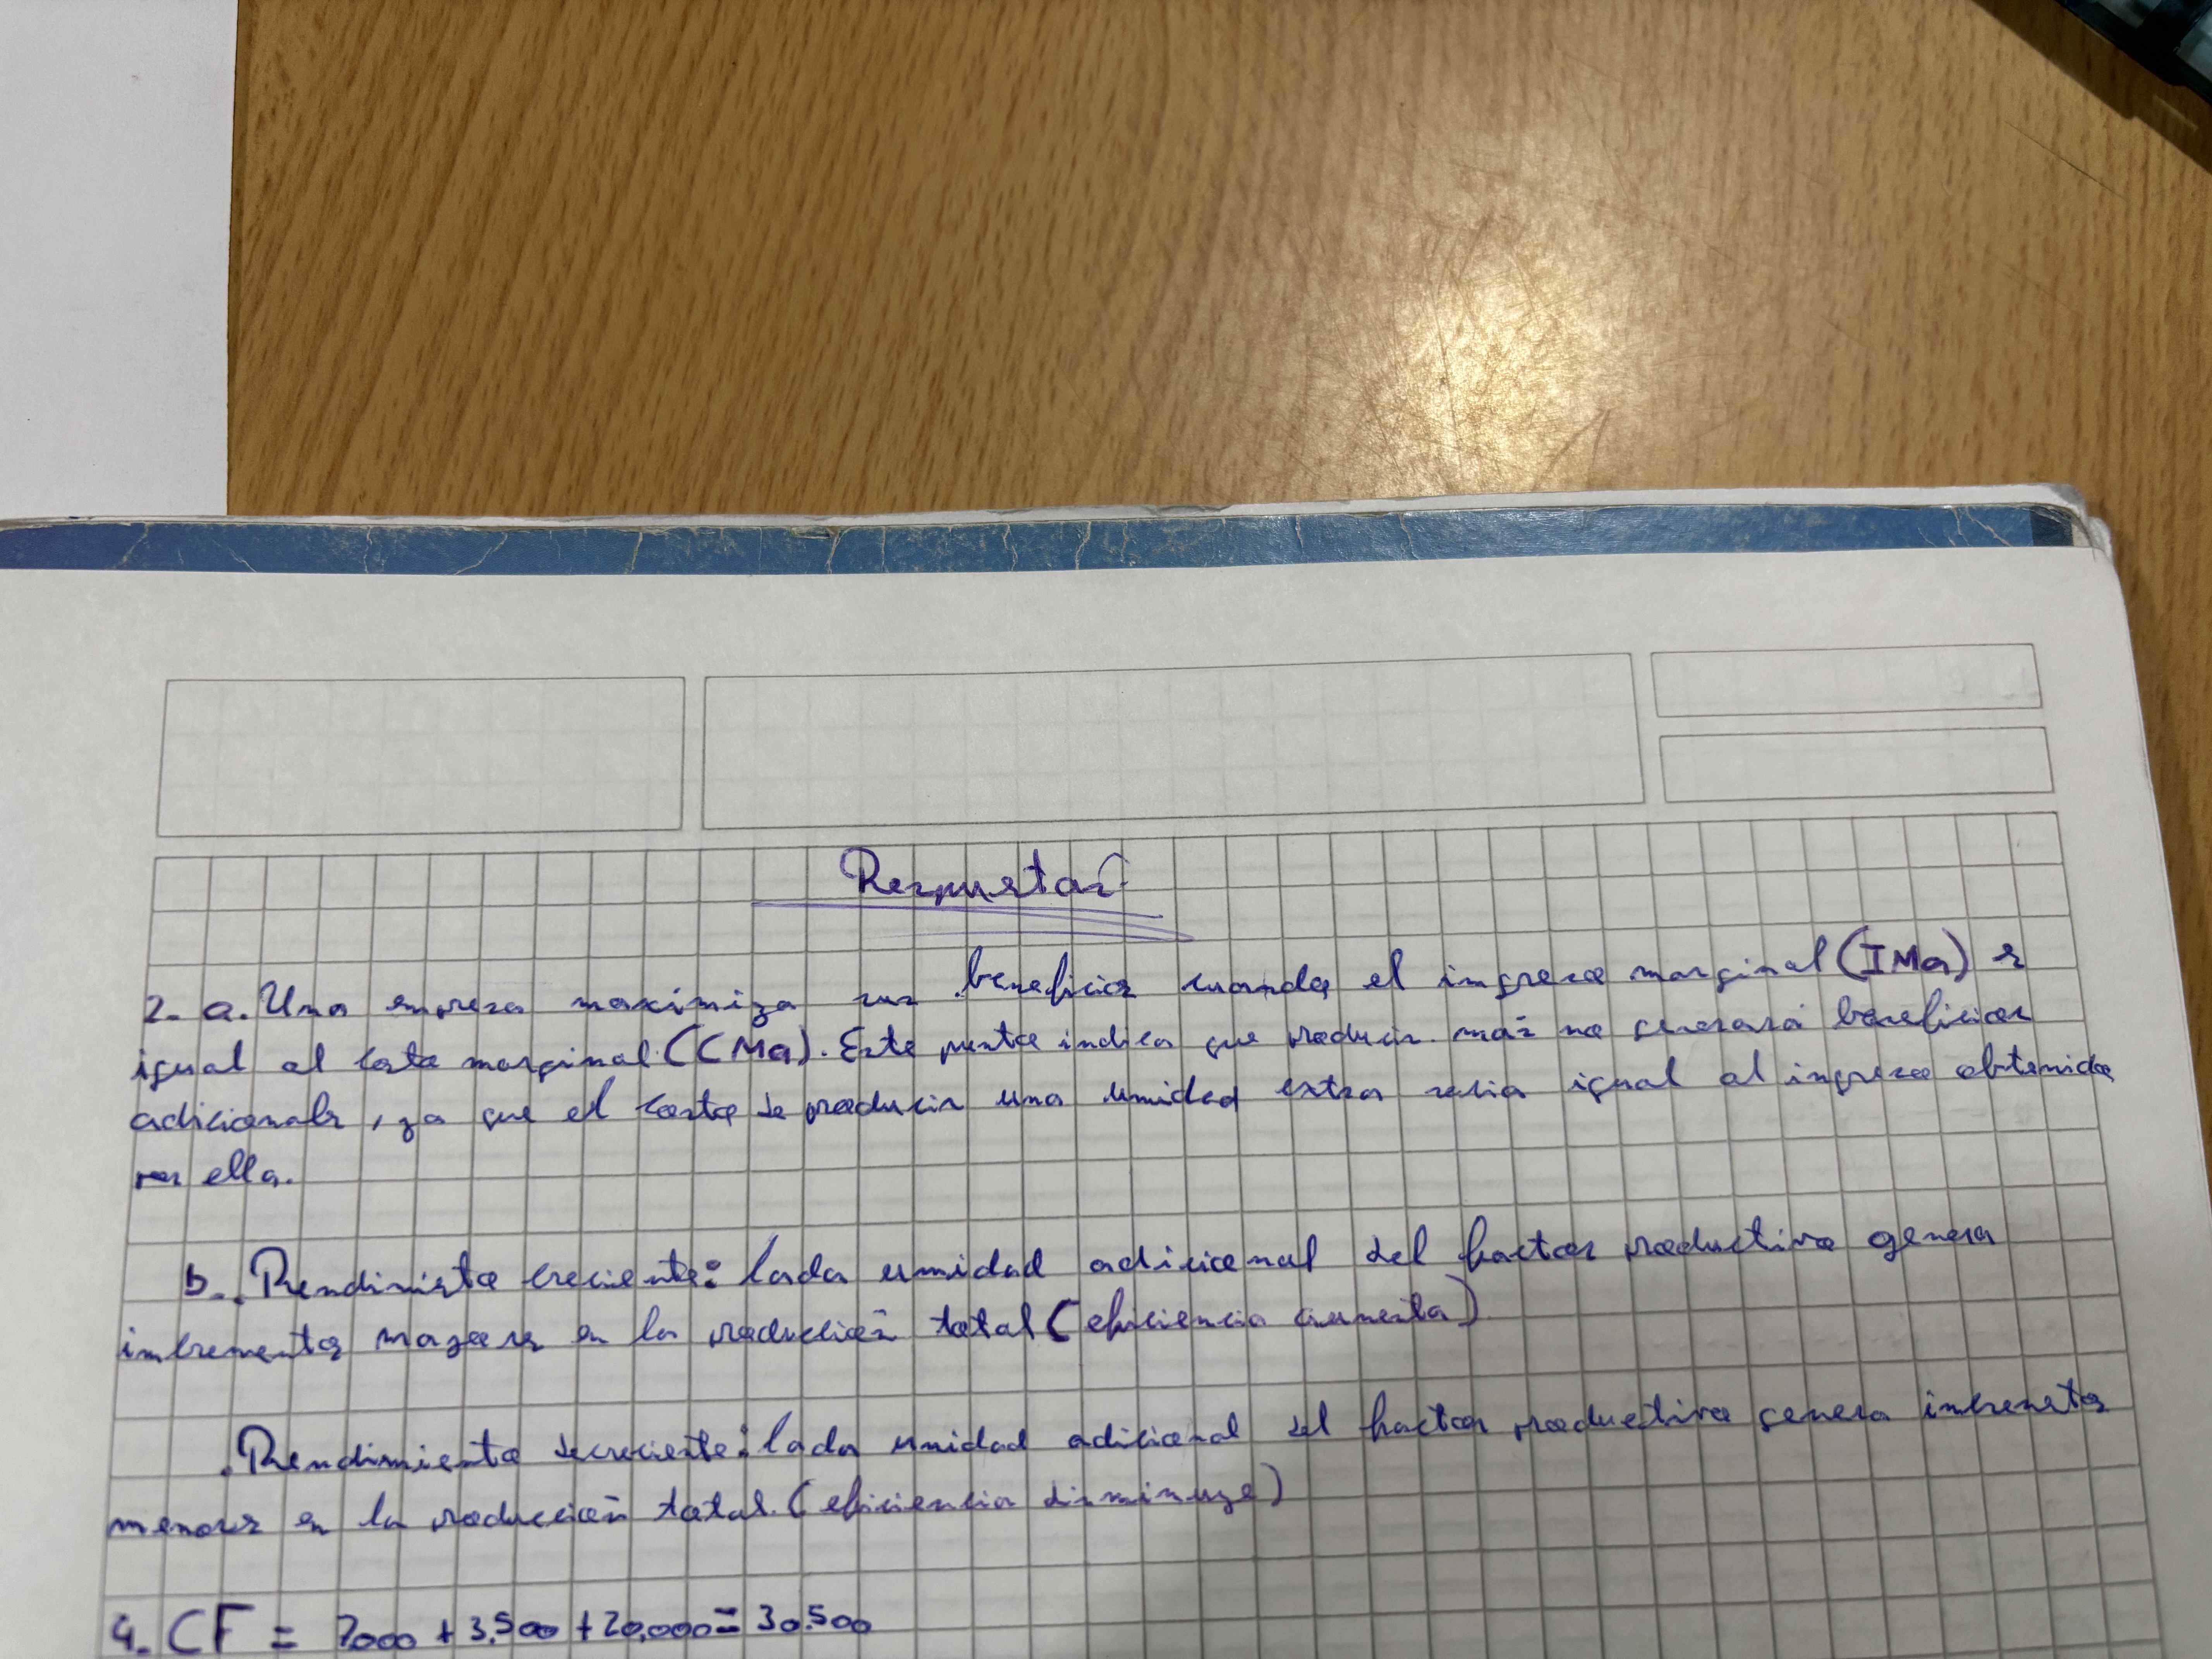 Respuestas
2. a. Una empresa maximiza sus beneficios cuando el ingreso marginal (IMa) es
igual al costo marginal (CMa). Este punto indica que producir más no generará beneficios
adicionales, ya que el costo de producir una unidad extra sería igual al ingreso obtenido
por ella.
b. . Rendimiento creciente: Cada unidad adicional del factor productivo genera
incrementos mayores en la producción total (eficiencia aumenta)
. Rendimiento decreciente: Cada unidad adicional del factor productivo genera incrementos
menores en la producción total. (eficiencia disminuye)
4. CF = 7000 + 3.500 + 20.000 = 30.500